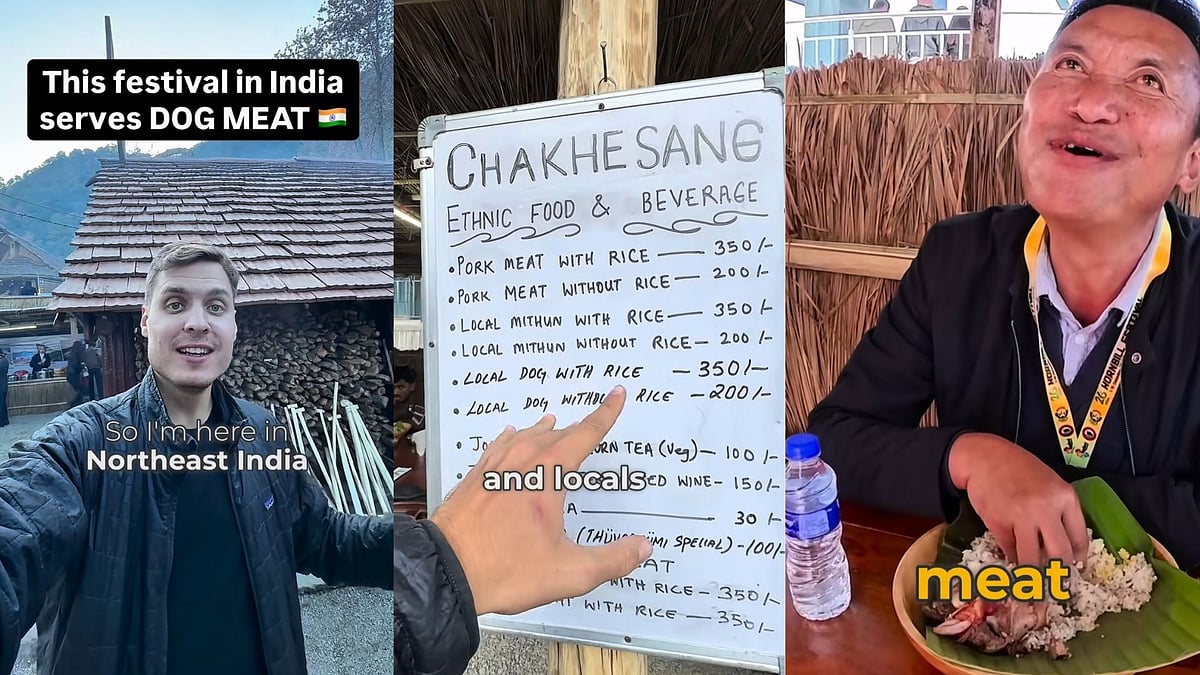 This festival in India
serves DOG MEAT
So I'm here in
Northeast India
CHAKHESANG
ETHNIC FOOD & BEVERAGE
• PORK MEAT WITH RICE — 350/-
• PORK MEAT WITHOUT RICE — 200/-
• LOCAL MITHUN WITH RICE — 350/-
• LOCAL MITHUN WITHOUT RICE — 200/-
• LOCAL DOG WITH RICE — 350/-
• LOCAL DOG WITHOUT RICE — 200/-
TEA (Veg) — 100/-
WINE — 150/-
30/-
SPECIAL) — 100/-
WITH RICE — 350/-
WITH RICE — 350/-
and locals
HORNBILL FESTIVAL
meat